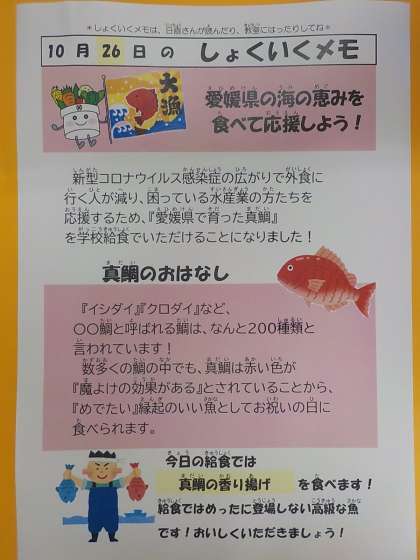 ＊しょくいくメモは、日直さんが読んだり、教室にはったりしてね＊
10月26日の しょくいくメモ
大漁
愛媛県の海の恵みを
食べて応援しよう！
新型コロナウイルス感染症の広がりで外食に
行く人が減り、困っている水産業の方たちを
応援するため、『愛媛県で育った真鯛』
を学校給食でいただけることになりました！
真鯛のおはなし
『イシダイ』『クロダイ』など、
〇〇鯛と呼ばれる鯛は、なんと200種類と
言われています！
数多くの鯛の中でも、真鯛は赤い色が
『魔よけの効果がある』とされていることから、
『めでたい』縁起のいい魚としてお祝いの日に
食べられます。
今日の給食では
真鯛の香り揚げ を食べます！
給食ではめったに登場しない高級な魚
です！おいしくいただきましょう！